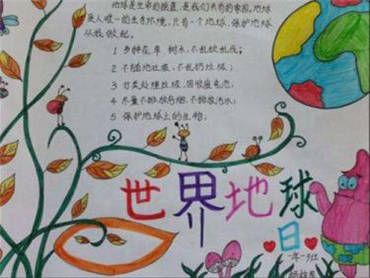 地球是生命的摇篮,是我们共有的家园,地球
是人唯一的生存环境,只有一个地球,保护地球
从我做起。
1 多种花草、树木,不乱砍乱伐;
2 不随地吐痰,不乱扔垃圾;
3 分类处理垃圾,回收废电池;
4 尽量不排放污烟,不排放污水;
5 保护地球上的生物;
世界地球
日
一年
班